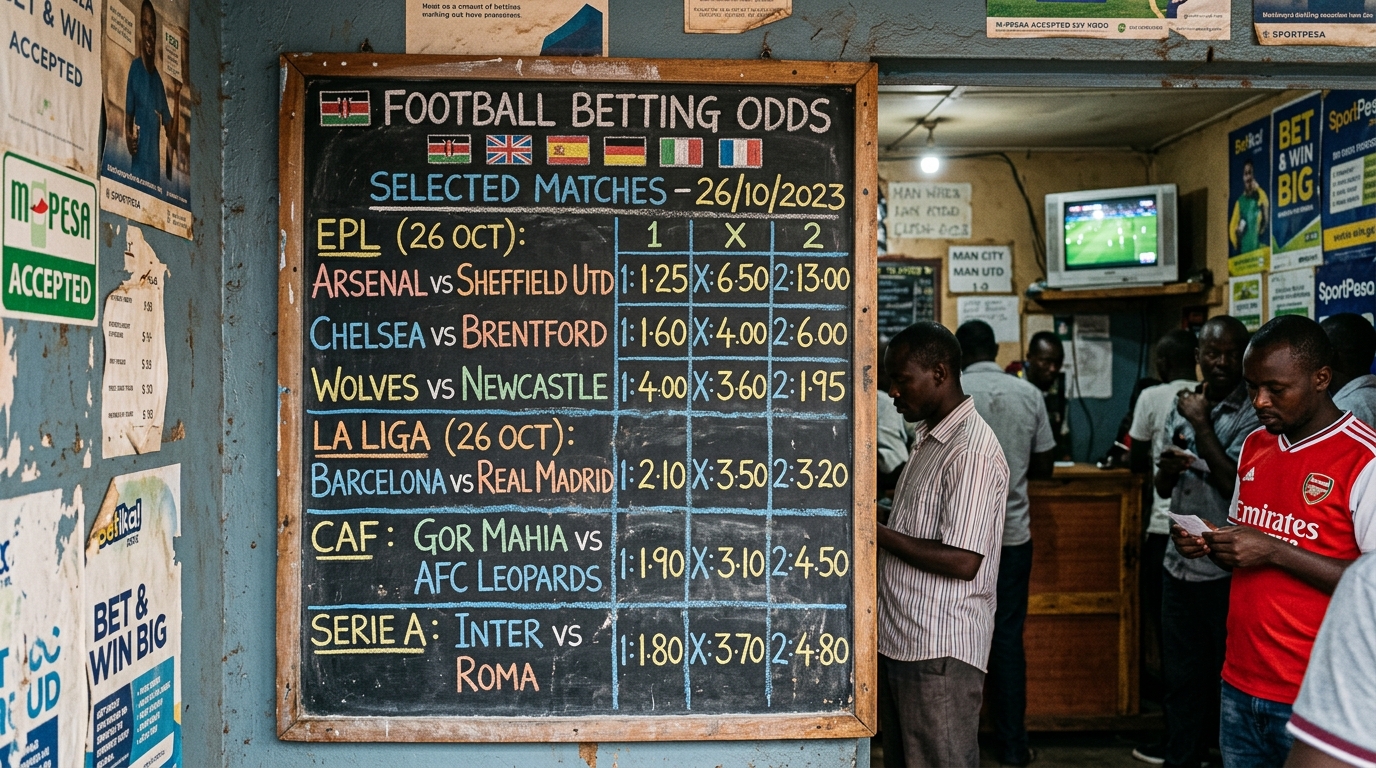 & WIN
ACCEPTED
SPORTPESA
M-PESA
ACCEPTED
betika!
BET &
WIN BIG
FOOTBALL BETTING ODDS
SELECTED MATCHES – 26/10/2023
EPL (26 OCT): 1 X 2
ARSENAL VS SHEFFIELD UTD 1:1.25 X:6.50 2:13.00
CHELSEA VS BRENTFORD 1:1.60 X:4.00 2:6.00
WOLVES VS NEWCASTLE 1:4.00 X:3.60 2:1.95
LA LIGA (26 OCT):
BARCELONA VS REAL MADRID 1:2.10 X:3.50 2:3.20
CAF: GOR MAHIA VS
AFC LEOPARDS 1:1.90 X:3.10 2:4.50
SERIE A: INTER VS
ROMA 1:1.80 X:3.70 2:4.80
SPORTPESA
MAN CITY
MAN UTD
BET
& WIN
BIG
SportPesa
SportPesa
Arsenal
Emirates